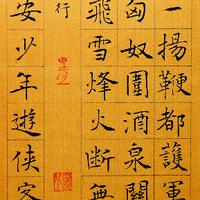 一揚鞭都護軍
匈奴圍酒泉關
飛雪烽火斷無
行
安少年遊俠客